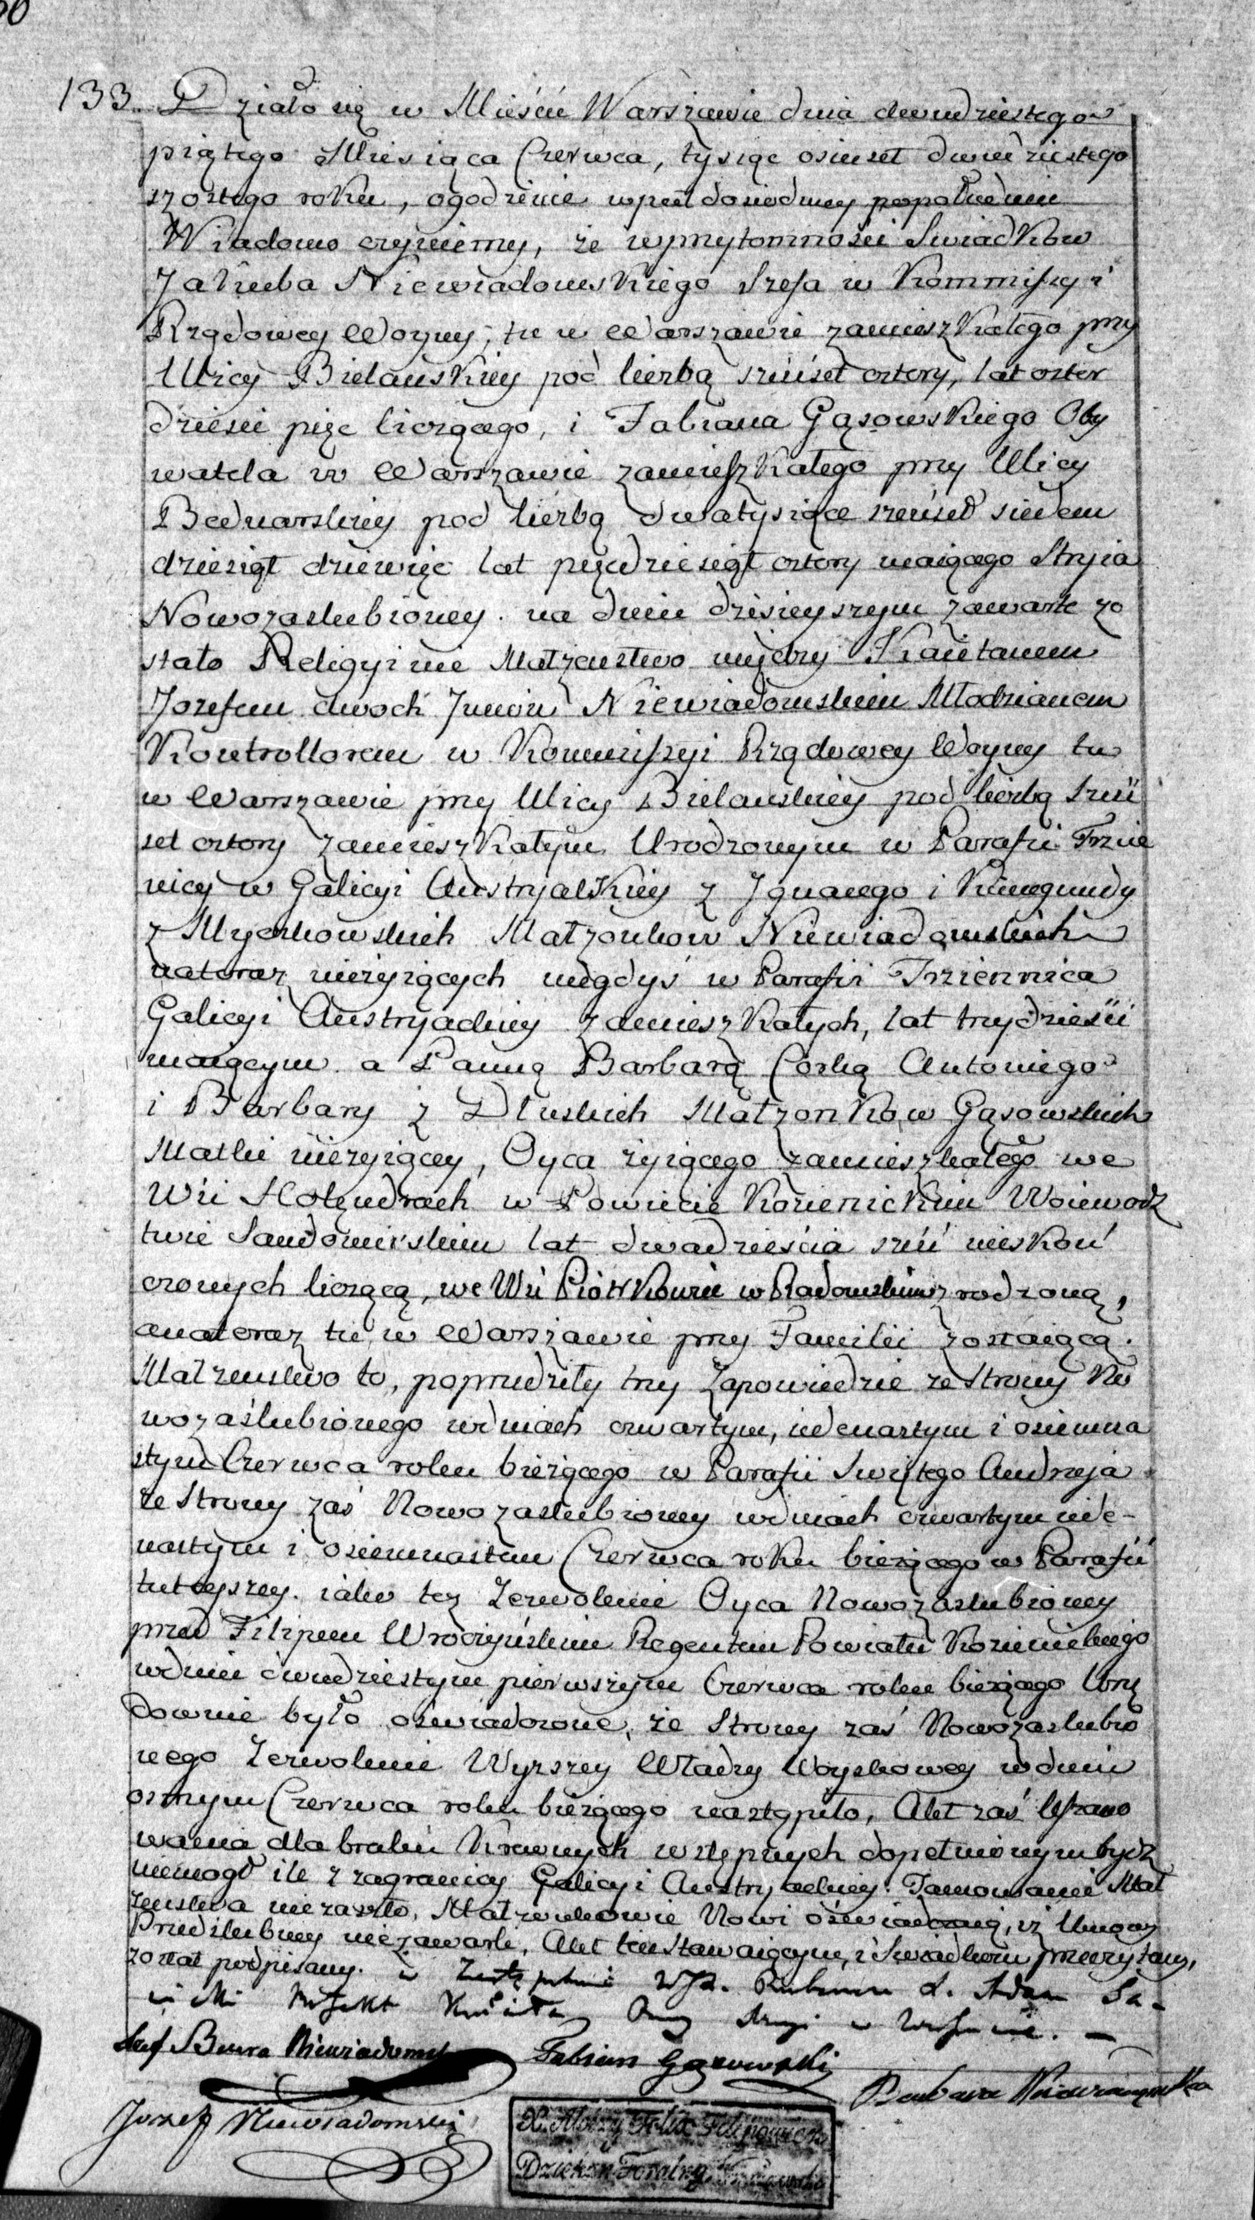 133. Działo się w Mieście Warszawie dnia dwudziestego
piątego Miesiąca Czerwca, tysiąc osimset dwudziestego
szostego roku, ogodzinie wpuł doniedmey popołudniu
Wiadomo czyniemy, że wprzytomności Swiadkow
Jakuba Niewiadomskiego Szefa w Kommissyi
Rządowey Woyny, tu w Warszawie zamieszkałego przy
Ulicy Bielańskiey pod liczbą sześćset cztery, lat czter
dzieści pięc liczącego, i Fabiana Gąsowskiego Oby
watela w Warszawie zamieszkałego przy Ulicy
Bednarskiey pod liczbą dwatysiące sześćset siedem
dziesiąt dziewięc lat pięcdziesiąt cztery maiącego Stryia
Nowozaslubioney. na dniu dzisieyszym zawarte zo
stało Religyine Małzenstwo między Kaietanem
Jozefem dwoch Jmion Niewiadomskim Młodzianem
Kontrollorem w Kommissyi Rządowey Woyny tu
w Warszawie przy Ulicy Bielańskiey pod liczbą sześć
set cztery zamieszkałym Urodzonym w Parafii Trzcie
nicy w Galicyi Austryalkiey z Jgnacego i Kunegundy
z Myszkowskich Małzonkow Niewiadomskich
nateraz nieżyiących niegdyś w Parafii Trzciennica
Galicyi Austryackiey zamieszkałych, lat trzydzieści
maiącym a Panną Barbarą Corką Antoniego
i Barbary z Dłuskich Małzonkow Gąsowskich
Matki nieżyiącey, Oyca żyiącego zamieszkałego we
Wsi Holendrach w Powiecie Kozienickim Woiewodz
twie Sandomirskim lat dwadzieścia sześć nieskoń
czonych liczącą, we Wsi Piotrkowie w Radomskim zrodzoną,
anateraz tu w Warszawie przy Familii zostaiącą.
Małzenstwo to, poprzedziły trzy Zapowiedzie ze Strony No
wozaślubionego wdniach czwartym, iedenastym i osiemna
stym Czerwca roku bieżącego w Parafii Swiętego Andrzeja
ze Strony zaś Nowozaslubioney wdniach czwartym iede-
nastym i osiemnastem Czerwca roku bieżącego w Parafii
tuteyszey. iako tez Zezwolenie Oyca Nowozaslubioney
przed Filipem Wroczyńskim Regentem Powiatu Kozienickiego
wdniu dwudziestym pierwszym Czerwca roku bieżącego Urzę
downie było oświadczone, ze Strony zaś Nowozaslubio
nego Zezwolenie Wyzszey Władzy Woyskowey wdniu
osmym Czerwca roku bieżącego nastąpiło, Akt zaś Uszano
wania dla braku Krewnych wstępnych dopełnionym bydz
niemogł ile z zagranicy Galicyi Austryackiey. Tamowanie Mał
zenstwa niezaszło. Małzonkowie Nowi oświadczaią, iż Umowy
Przedślubney niezawarli, Akt ten Stawaiącym, i Swiadkom przeczytany,
został podpisany. w Zastępstwie X. Adam
w
Szef Biura Niewiadomski Fabian Gąsowski
Barbara
Jozef Niewiadomski
X. Felix
Dziekan Foralny